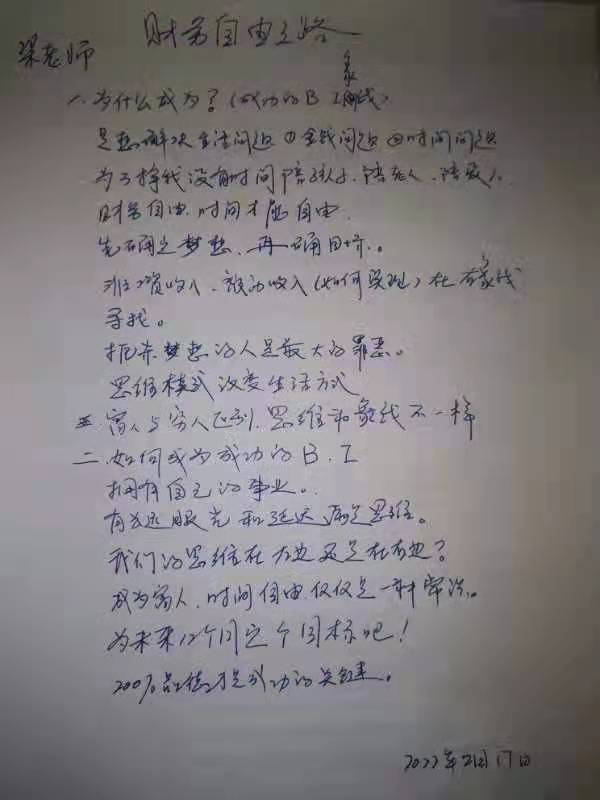 财务自由之路
梁老师
一、为什么成为?(成功的B I象线)
是想解决生活问题①金钱问题②时间问题
为了挣钱没有时间陪孩子、陪老人、陪爱人
财务自由.时间才能自由.
先确定梦想.再确目标.。
工资收入.被动收入(如何实现)在右象线
寻找。
扼杀梦想的人是最大的罪恶。
思维模式改变生活方式
富人与穷人区别.思维和象线不一样
二.如何成为成功的B.I
拥有自己的事业。
有长远眼光和延迟满足思维。
我们的思维在左边还是在右边?
成为富人.时间自由.仅仅是一种常识。
为未来12个月定个目标吧!
200%品德才是成功的关键。
2022年2月17日